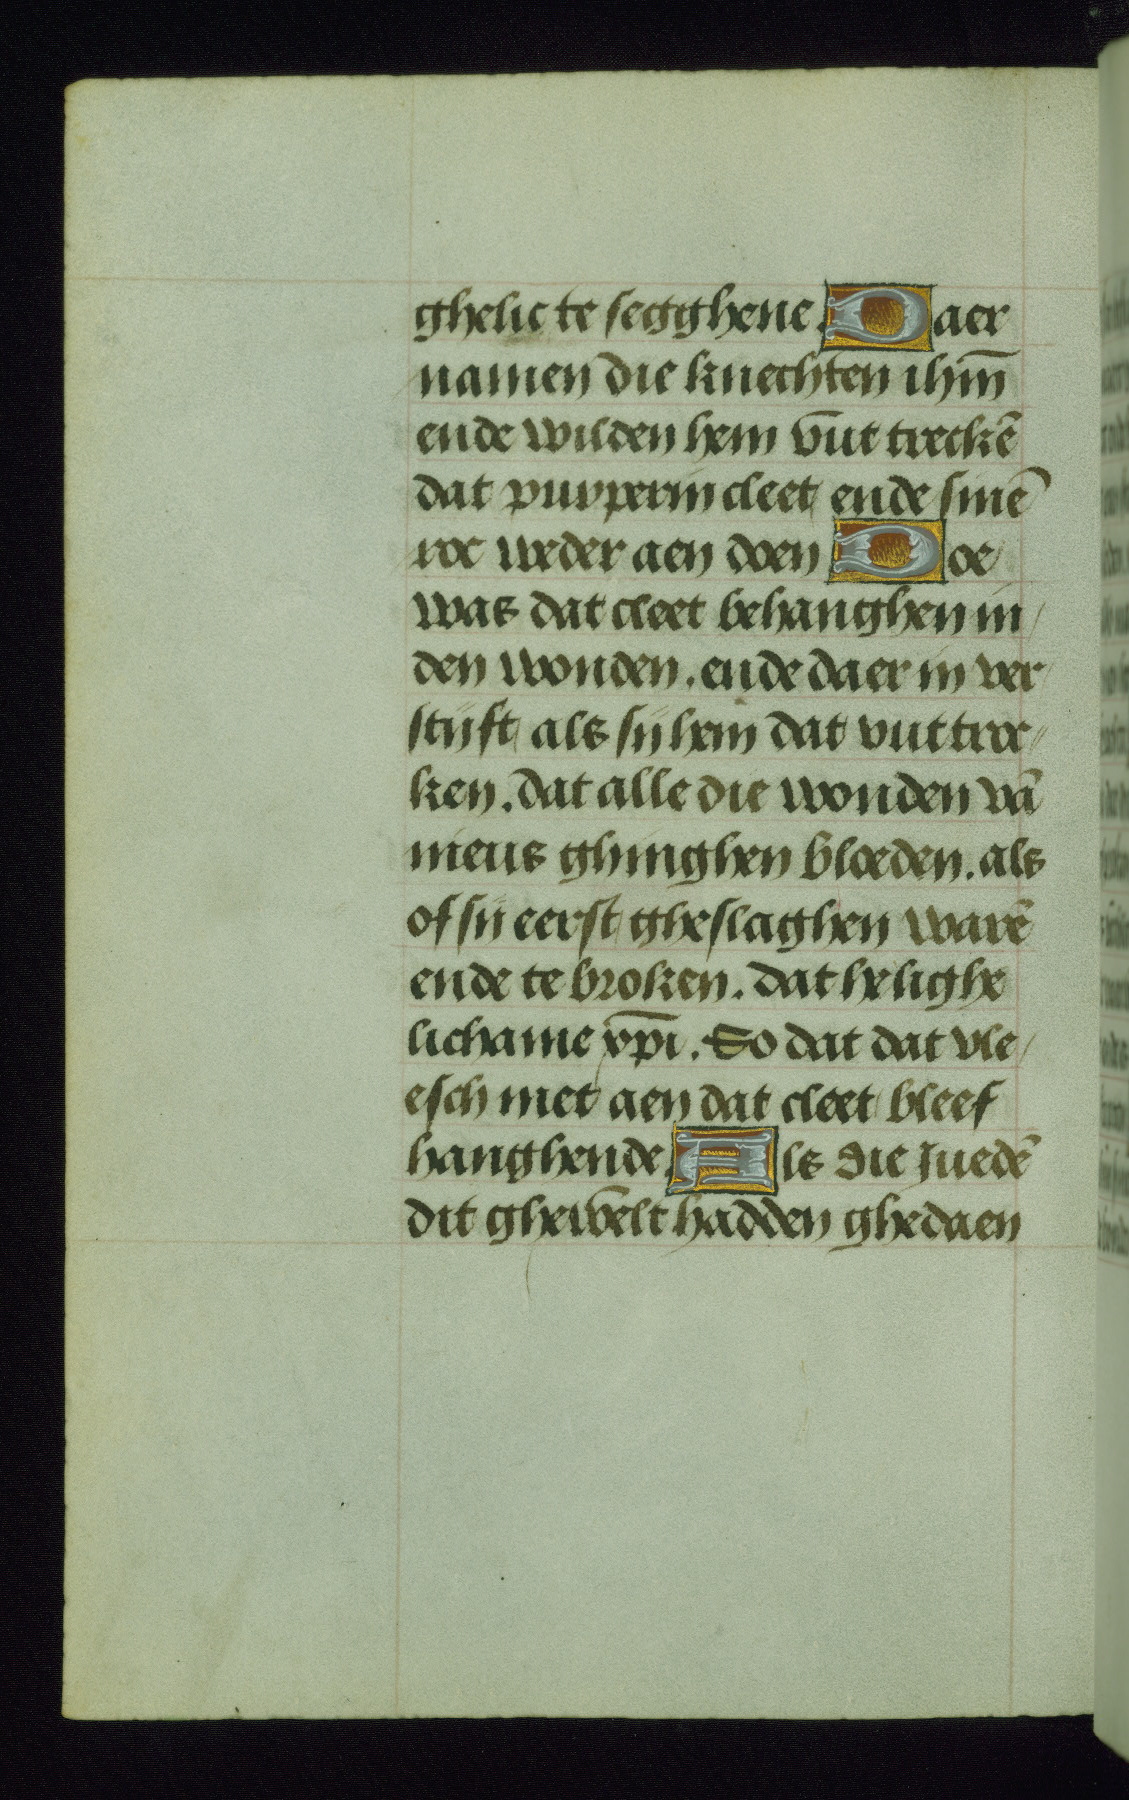 ghelic te segghene. Daer
namen die knechten ihm̅
ende wilden hem v̅ut treckē
dat purperin cleet ende sinē
roc weder aen doen Doe
was dat cleet behanghen in
den wonden. ende daer in ver
stijft als sij hem dat vut troc
ken. dat alle die wonden vā
nieus ghinghen bloeden. als
of sij eerst gheslaghen warē
ende te broken. dat helighe
lichame xp̅i. So dat dat vle
esch met aen dat cleet bleef
hanghende. Als die Juedē
dit ghewelt hadden ghedaen